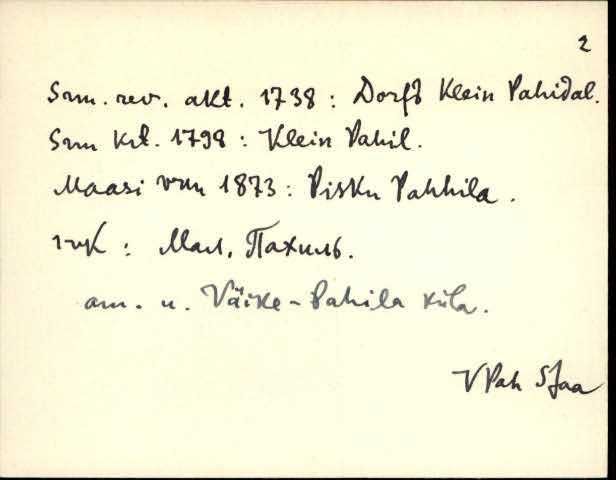 2
Srm. rev. akt. 1738: Dorff Klein Pahidal.
Srm krt. 1798: Klein Pahil.
Maasi vrn 1873: Pisku Pahhila.
1-vK: Мал. Пахиль.
am. n. Väike-Pahila küla.
VPah SJaa